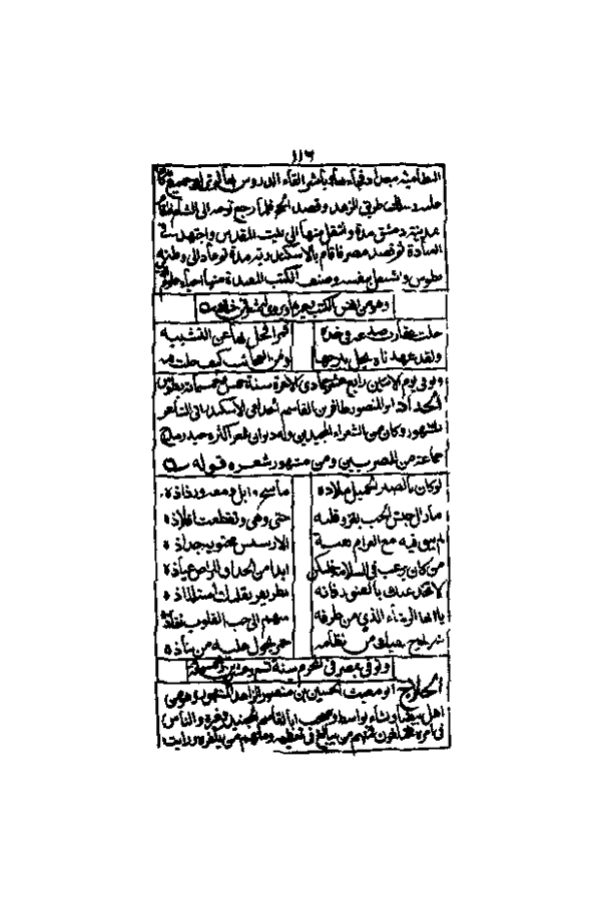 ١١٦
النظامية ببغداد فجاءها وباشر القاء الدروس بها ثم ترك جميع ما كان
عليه وسلك طريق الزهد وقصد الحج فلما رجع توجه الى الشام فاقام
بمدينة دمشق مدة وانتقل منها الى بيت المقدس واجتهد في
العبادة ثم قصد مصر فاقام بالاسكندرية مدة ثم عاد الى وطنه
بطوس واشتغل بنفسه وصنف الكتب المفيدة منها احياء علوم
وهو من انفس الكتب
حلت عقارب صدغه في خده
قمرا يجل بها عن التشبيه
ولقد عهدناه يحل ببرجها
ومن العجائب كيف حلت فيه
وتوفي يوم الاثنين رابع عشر جمادى الاخرة سنة خمس وخمسمائة بطوس
الحداد ابو المنصور ظافر بن القاسم الجذامي الاسكندراني الشاعر
المشهور وكان من الشعراء المجيدين وله ديوان شعر اكثره جيد
جماعة من المصريين ومن مشهور شعره قوله
لو كان بالصبر الجميل ملاذه
ما سح وابل دمعه ورذاذه
ما زال جيش الحب يغزو قلبه
حتى وهى وتقطعت افلاذه
لم يبق فيه مع الغرام بقية
الا رسيس يحتويه جذاذه
من كان يرغب في السلامة فليكن
ابدا من الحدق المراض عياذه
لا تخدعنك بالفتور فانه
نظر يضر بقلبك استلذاذه
يا ايها الرشاء الذي من طرفه
سهم الى حب القلوب نفاذه
در يلوح بفيك من نظامه
خمر يجول عليه من نباذه
وتوفي بمصر في المحرم سنة تسع وعشرين وخمسمائة
الحلاج ابو مغيث الحسين بن منصور الزاهد المشهور وهو من
اهل بيضا ونشاء بواسط وصحب ابا القاسم الجنيد وغيره والناس
في امره مختلفون فمنهم من يبالغ في تعظيمه ومنهم من يكفره ورايت